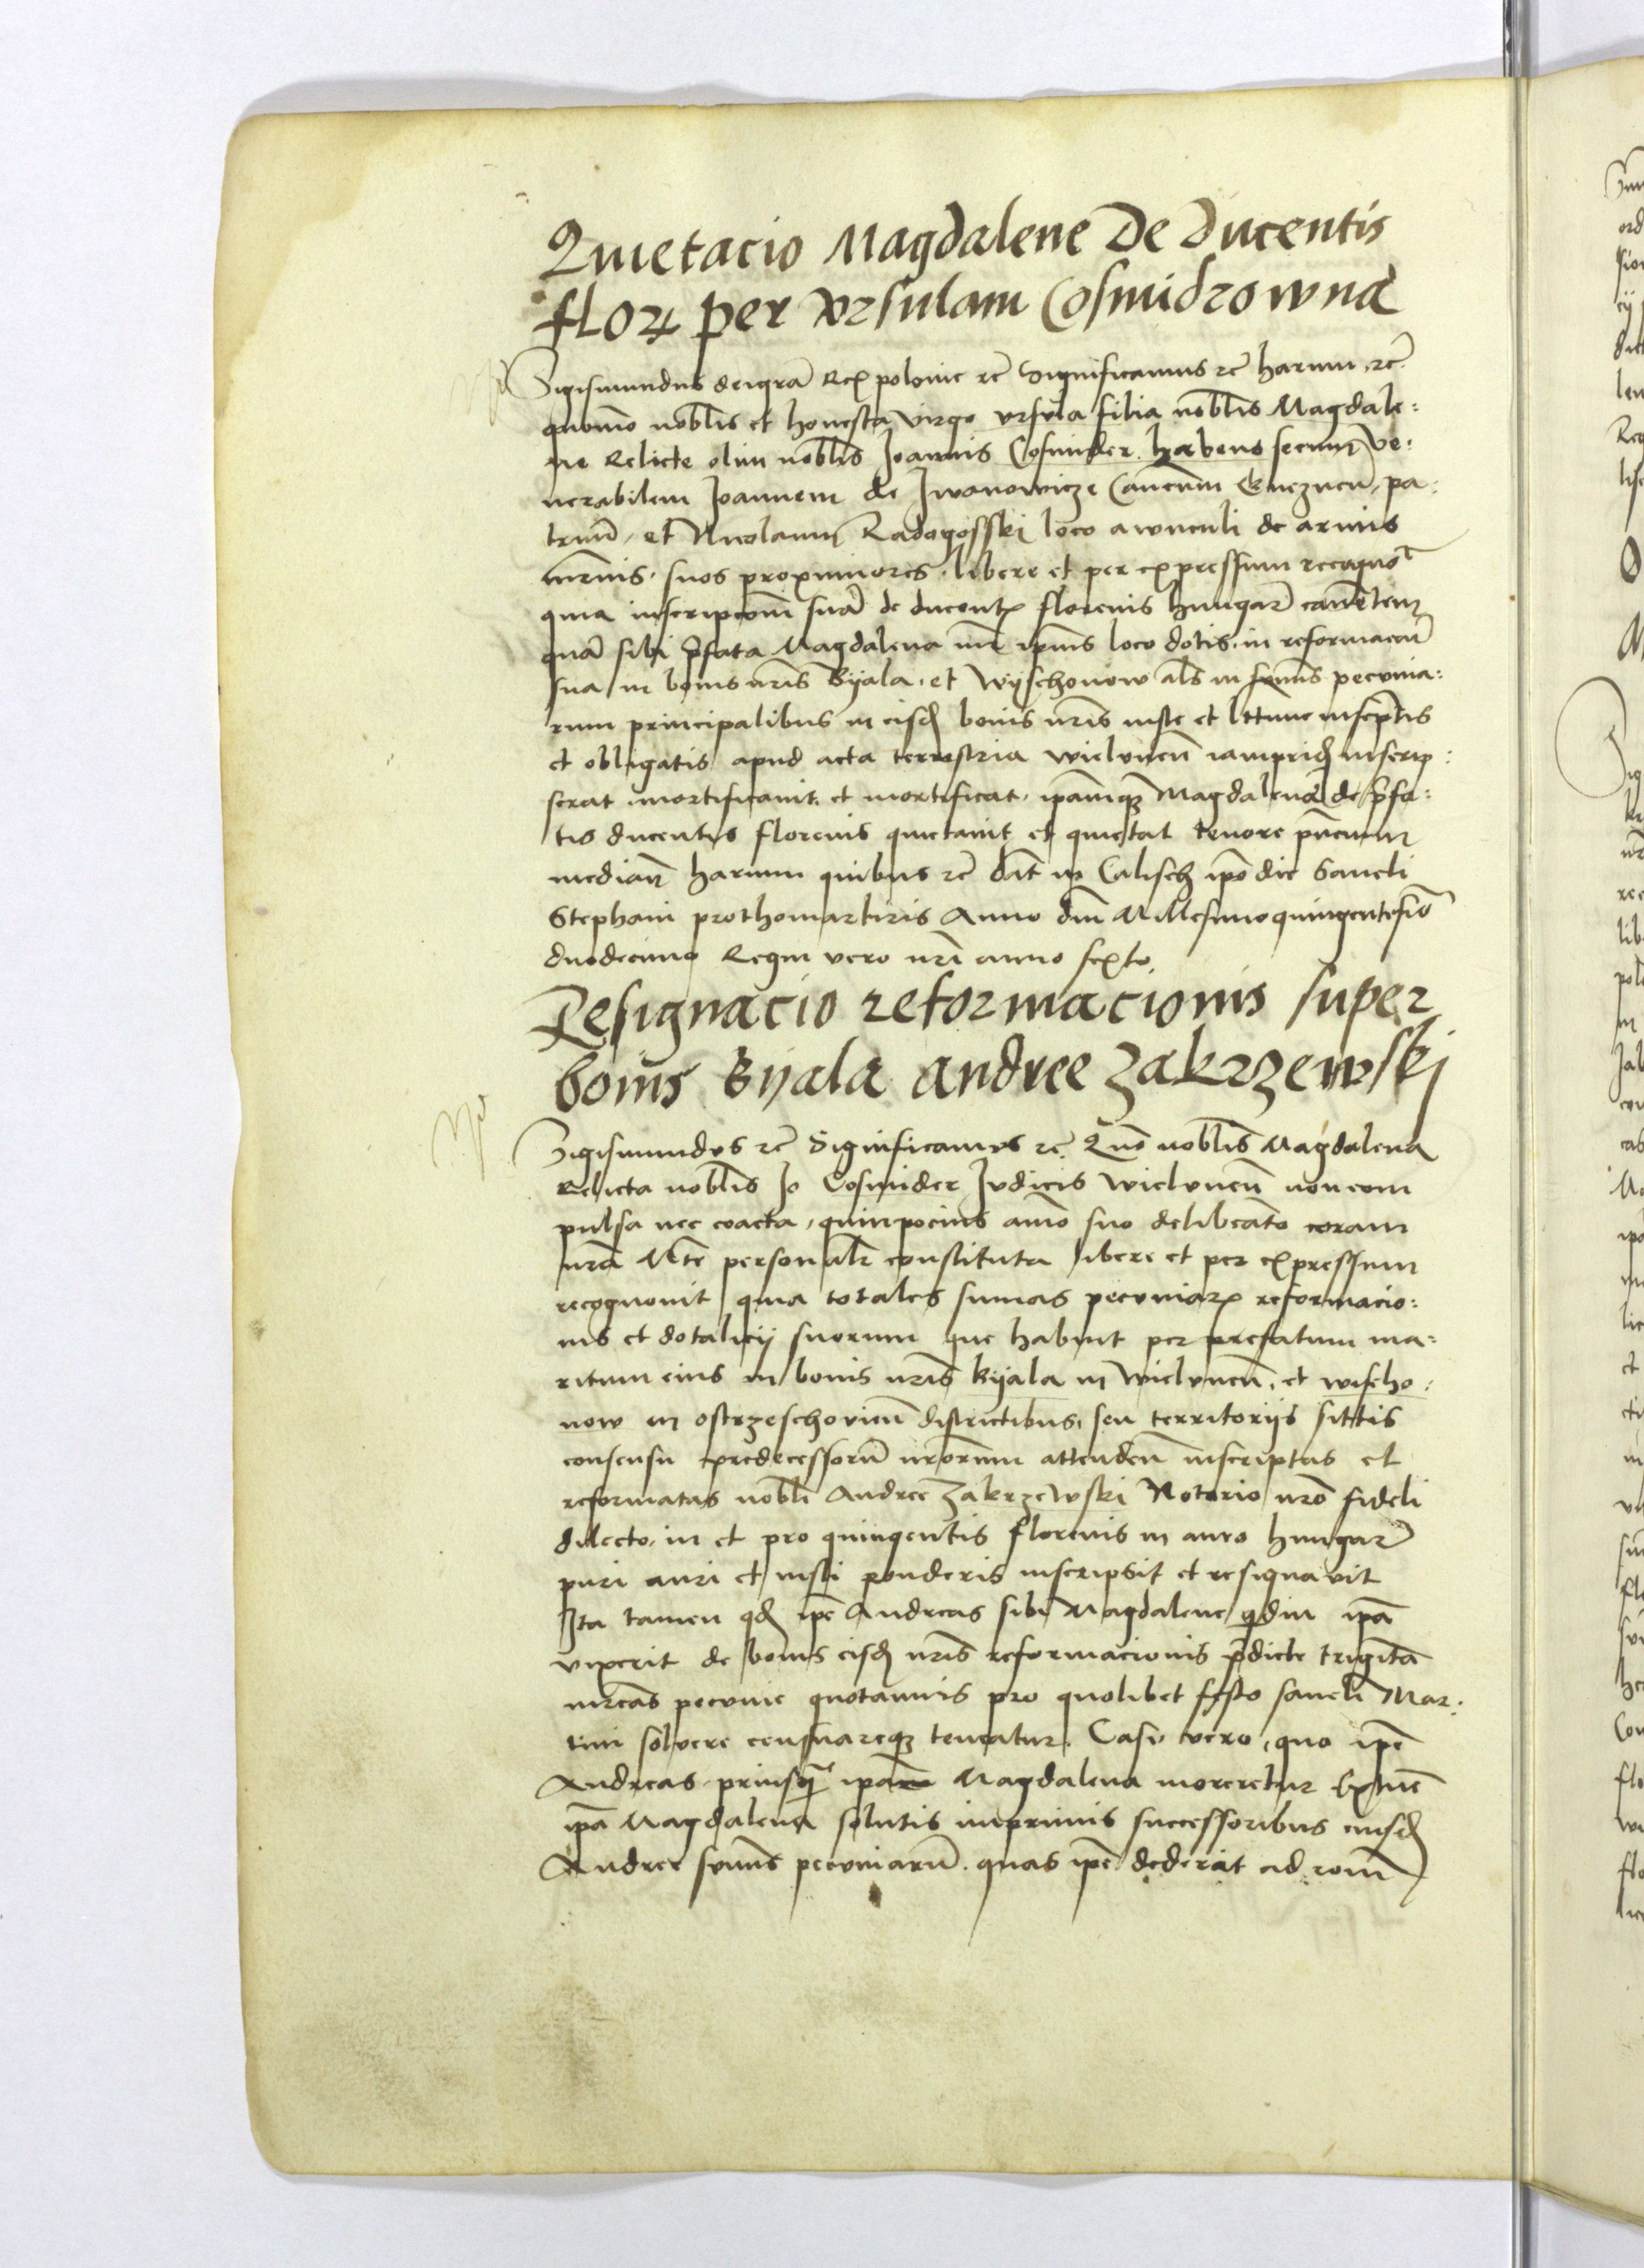 Quietacio Magdalene De Ducentis
flor per Vrsulam Cosmidrowna
Sigismundus dei gra Rex polonie rc Significamus rc harum rc
quomo noblis et honesta virgo vrsula filia noblis Magdale:
ne Relicte olim noblis Joannis Cosmider habens secum Ve:
nerabilem Joannem de Jwanowicze Cancum Gneznen, pa:
truu, et Nicolaum Radogosski loco awunculi de armis
mrnis, suos proximiores, libere et per expressum recogno
quia inscripcom sua de ducent florenis hungar caventem
qua sibi pfata Magdalena mr ipius loco dotis, in reformacoe
sua in bonis nris Byala, et Wyschonow als in sumis pecunia:
rum principalibus in eisd bonis nris iuste et lttime inscptis
et obligatis apud acta terrestria wielunen iamprid inscrip:
serat mortificauit et mortificat, ipamqz Magdalena de pfa:
tis ducentis florenis quietauit et quietat tenore pncium
median harum quibus rc dat in Calisch ipo die Sancti
Stephani prothomartiris Anno dni Millesimoquingentesio
duodecimo Regni vero nri anno sexto.
Resignacio reformacionis super
bonis Byala andree Zakrzewski
Sigismundus rc Significamus rc Quo noblis Magdalena
Relicta noblis Jo Cosmider Judicis wielunen non com
pulsa nec coacta, quinpocius aio suo delibeato coram
nra Mte personalr constituta libere et per expressum
recognouit quia totales sumas pecuniar reformacio:
nis et dotalicij suorum que habuit per prefatum ma:
ritum eius in bonis nris Byala in Wielunen, et wischo:
now in ostrzeschouien districtibus, seu territorijs sittis
consensu predecessoru nrorum attenden inscriptas et
reformatas nobli Andree Zakrzewski Notario nro fideli
dilecto, in et pro quingentis florenis in auro hungar
puri auri et iusti ponderis inscripsit et resignauit
Ita tamen qd ipe Andreas sibi Magdalene qdiu ipa
vixerit de bonis eisd nris reformacionis pdicte triginta
mrcas pecunie quotannis pro quolibet festo sancti Mar:
tini soluere censuareqz teneatur. Casu vero, quo ipe
Andreas priusq ipa Magdalena moreretur Extuc
ipa Magdalena solutis inprimis successoribus eiusd
Andree sumis pecuniaru. quas ipe dederat ad rom